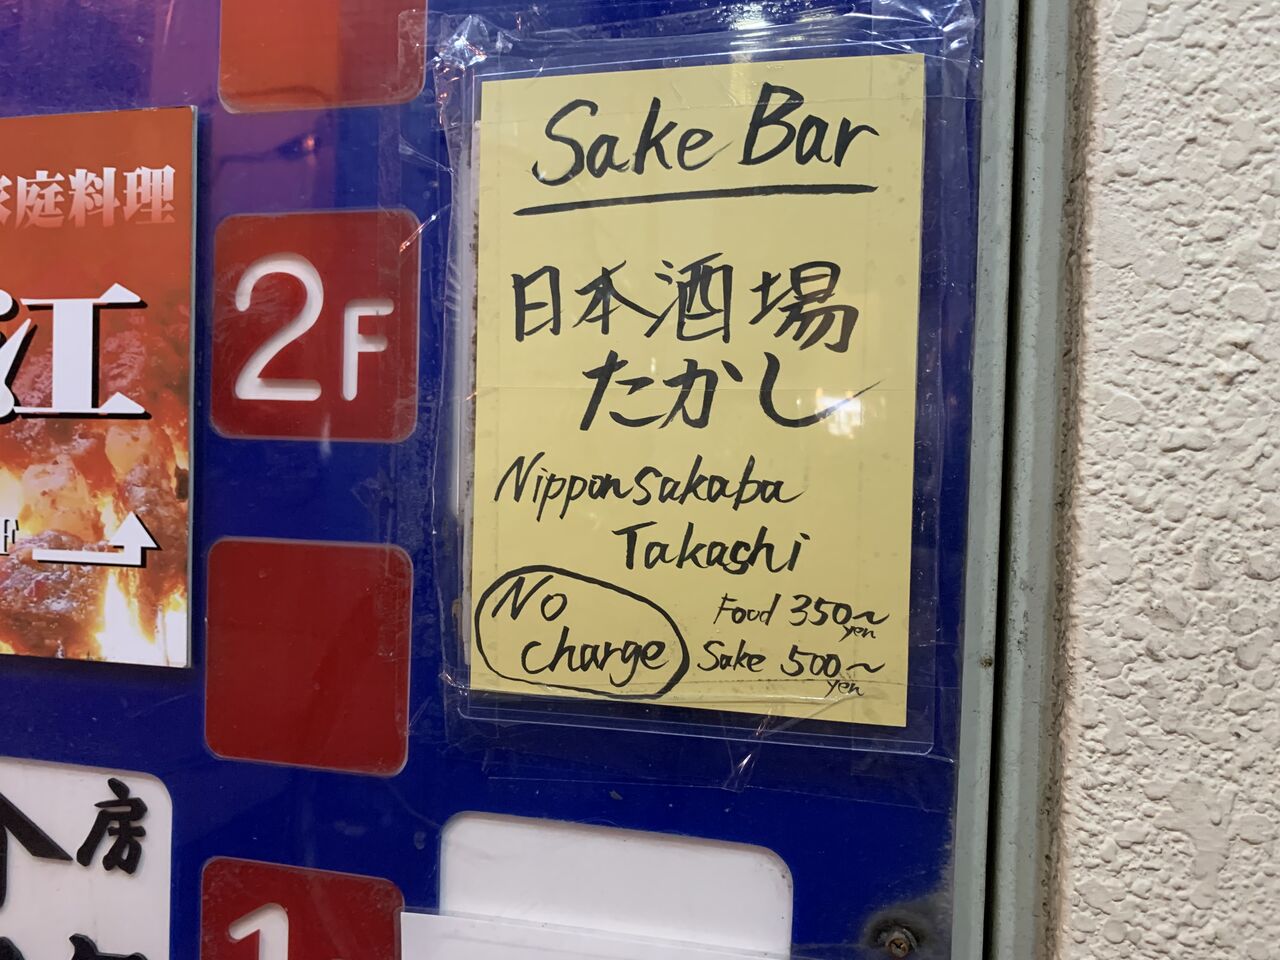 Sake Bar
日本酒場
たかし
Nipponsakaba
Takashi
No
charge
Food 350~
yen
Sake 500~
yen
2F
家庭料理
江
房
1